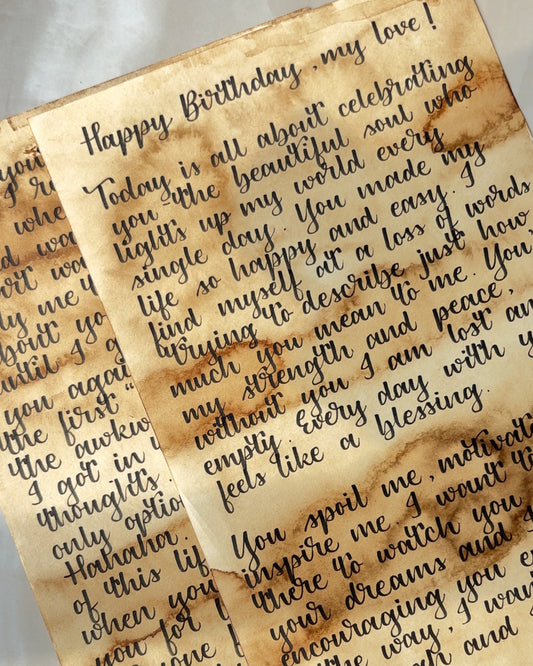 Happy Birthday, my love!
Today is all about celebrating
you - the beautiful soul who
lights up my world every
single day. You made my
life so happy and easy. I
find myself at a loss of words
trying to describe just how
much you mean to me. You,
my strength and peace,
without you I am lost an
empty. Every day with y
feels like a blessing.
You spoil me, motivat
inspire me. I want t
there to watch you
your dreams and
encouraging you e
the way, I wan
and
you
I r
d whe
wa
wa
ly me
bout yo
until I g
you again
the first "
the awkw
I got in
thoughts.
only optio
Hahaha.
of this lif
when you
you for
one